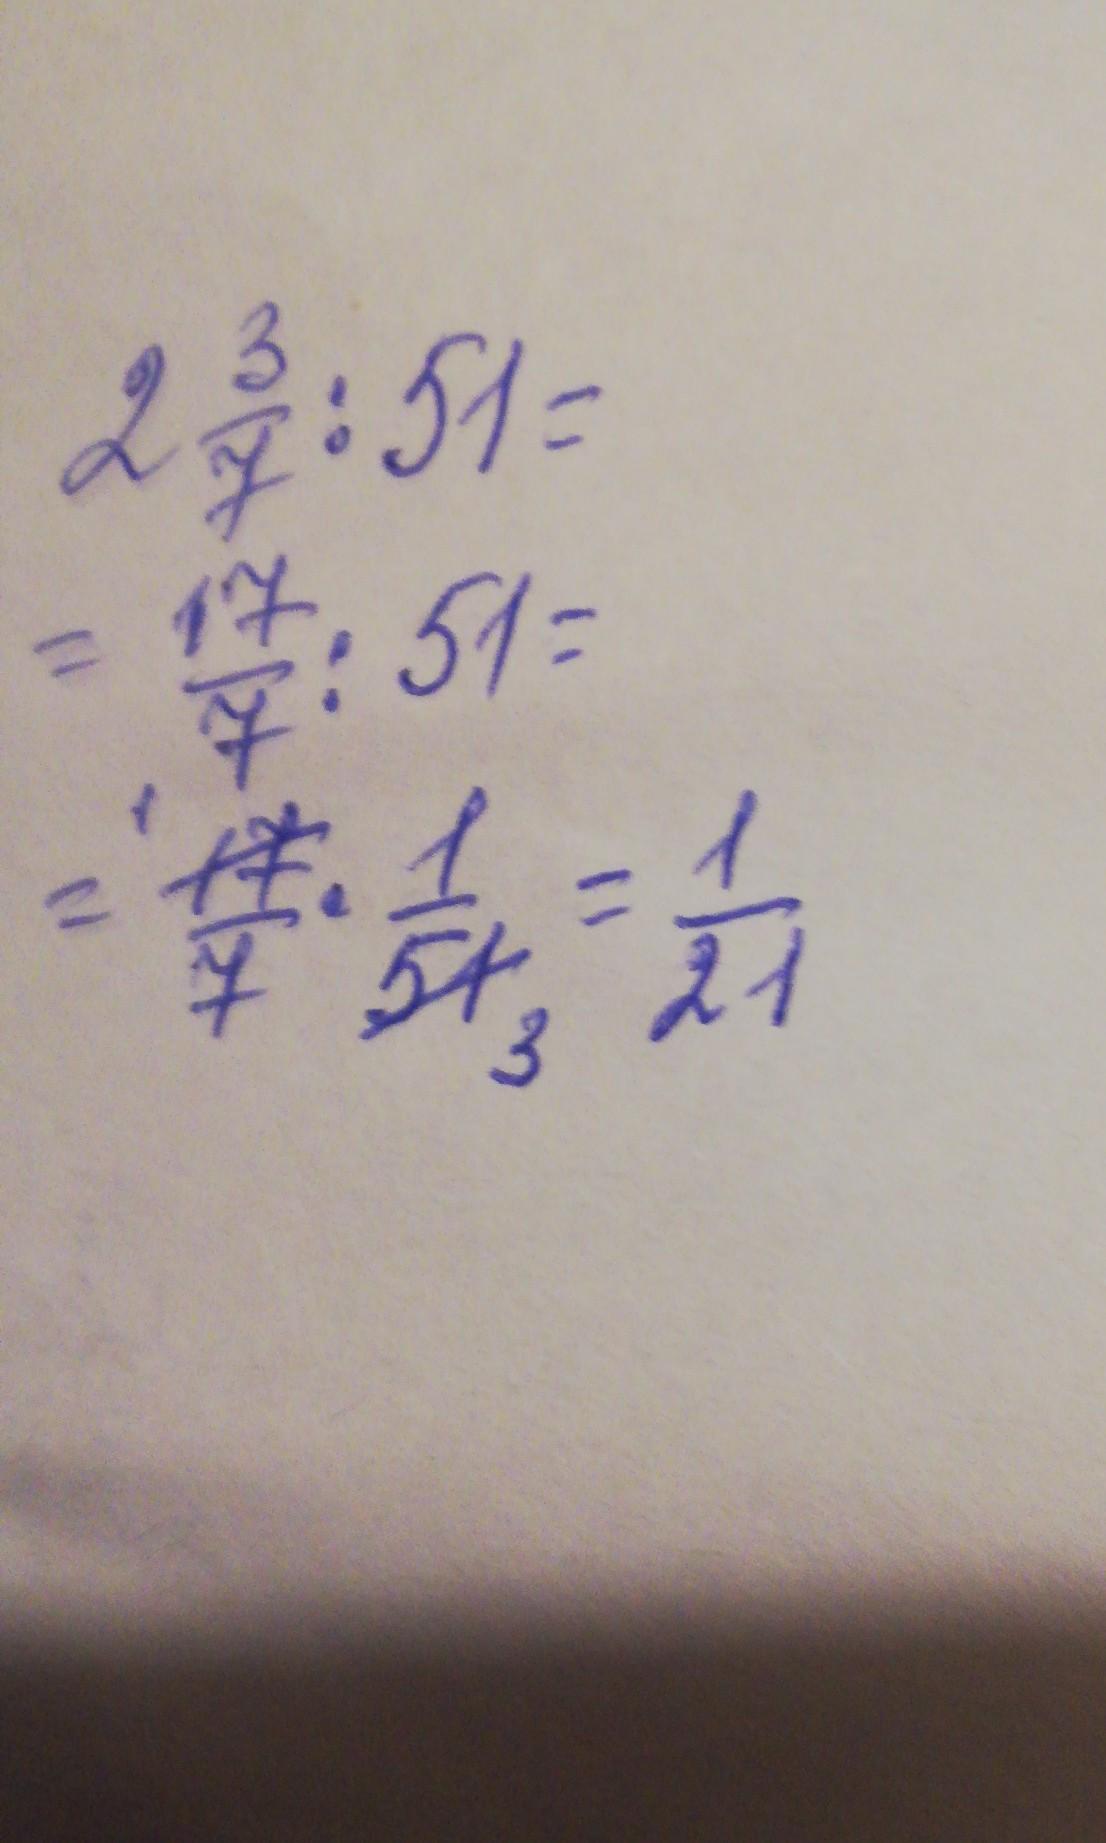 2 3/7 : 51 =
= 17/7 : 51 =
= 1 17/7 · 1/51 3 = 1/21